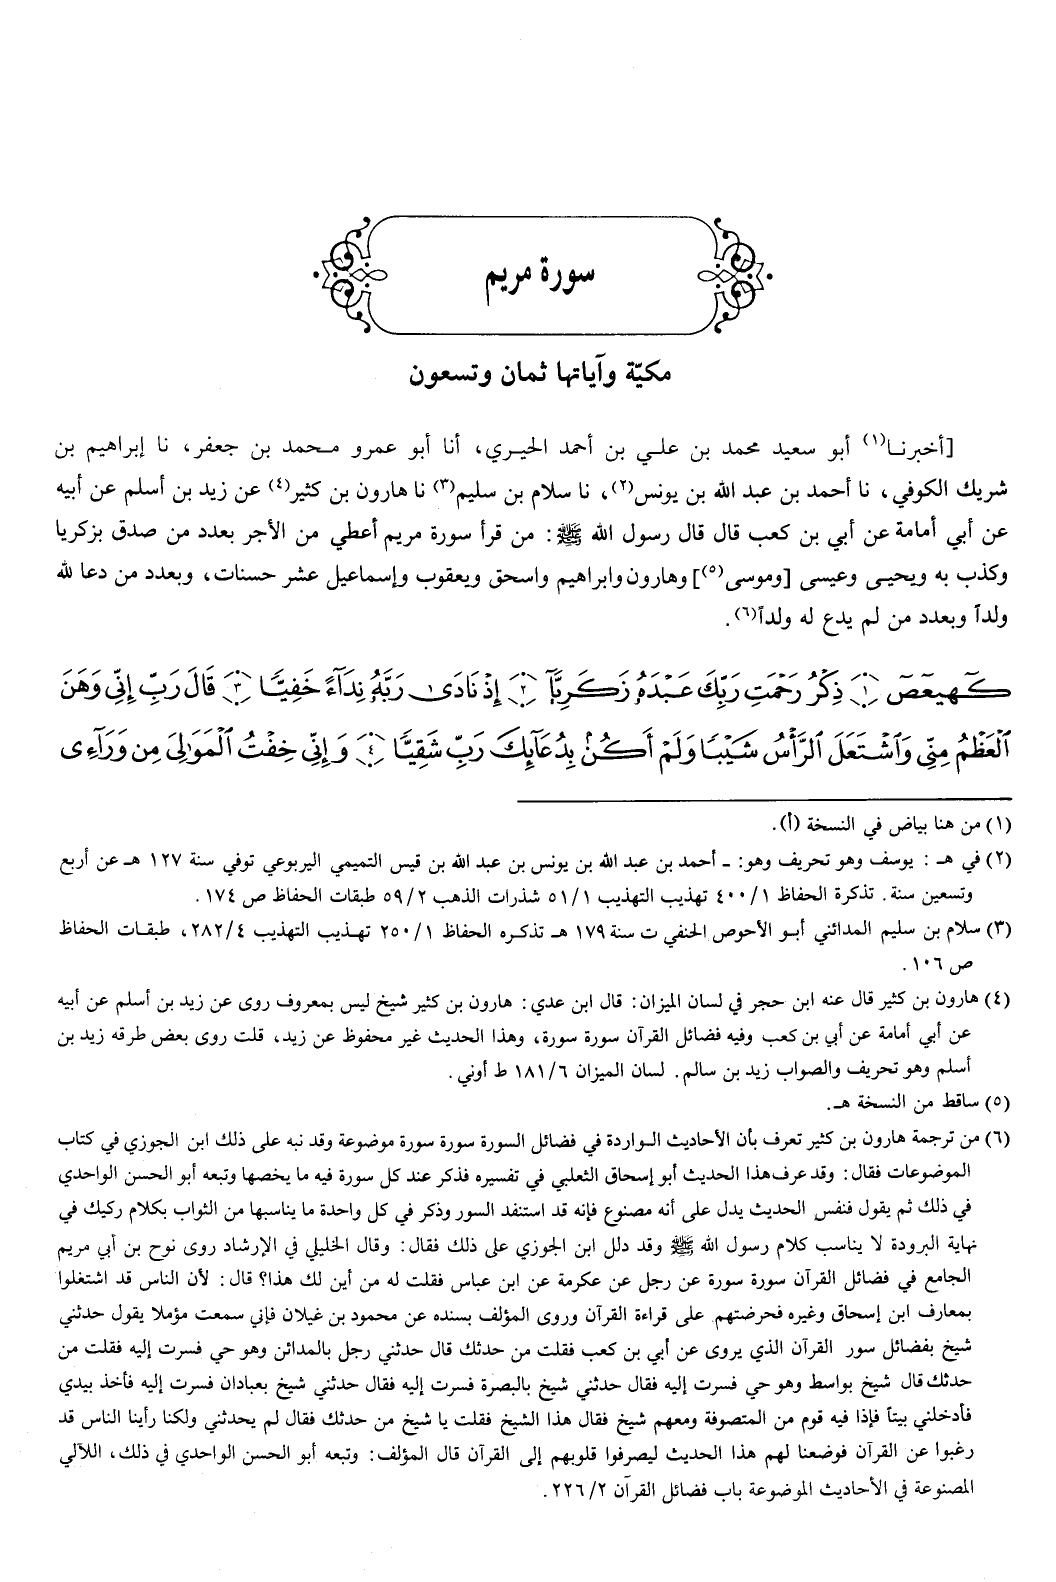 سورة مريم
مكيّة وآياتها ثمان وتسعون
[أخبرنا(١) أبو سعيد محمد بن علي بن أحمد الحيري، أنا أبو عمرو محمد بن جعفر، نا إبراهيم بن
شريك الكوفي، نا أحمد بن عبد الله بن يونس(٢)، نا سلام بن سليم(٣) نا هارون بن كثير(٤) عن زيد بن أسلم عن أبيه
عن أبي أمامة عن أبي بن كعب قال قال رسول الله ﷺ: من قرأ سورة مريم أعطي من الأجر بعدد من صدق بزكريا
وكذب به ويحيى وعيسى [وموسى(٥)] وهارون وابراهيم واسحق ويعقوب وإسماعيل عشر حسنات، وبعدد من دعا لله
ولداً وبعدد من لم يدع له ولداً(٦).
كٓهيعٓصٓ ﴿١﴾ ذِكْرُ رَحْمَتِ رَبِّكَ عَبْدَهُۥ زَكَرِيَّآ ﴿٢﴾ إِذْ نَادَىٰ رَبَّهُۥ نِدَآءً خَفِيًّا ﴿٣﴾ قَالَ رَبِّ إِنِّى وَهَنَ
ٱلْعَظْمُ مِنِّى وَٱشْتَعَلَ ٱلرَّأْسُ شَيْبًا وَلَمْ أَكُنۢ بِدُعَآئِكَ رَبِّ شَقِيًّا ﴿٤﴾ وَإِنِّى خِفْتُ ٱلْمَوَٰلِىَ مِن وَرَآءِى
(١) من هنا بياض في النسخة (أ).
(٢) في هـ : يوسف وهو تحريف وهو: ـ أحمد بن عبد الله بن يونس بن عبد الله بن قيس التميمي اليربوعي توفي سنة ١٢٧ هـ عن أربع
وتسعين سنة. تذكرة الحفاظ ١/٤٠٠ تهذيب التهذيب ١/٥١ شذرات الذهب ٢/٥٩ طبقات الحفاظ ص ١٧٤.
(٣) سلام بن سليم المدائني أبو الأحوص الحنفي ت سنة ١٧٩ هـ تذكره الحفاظ ١/٢٥٠ تهذيب التهذيب ٤/٢٨٢، طبقات الحفاظ
ص ١٠٦.
(٤) هارون بن كثير قال عنه ابن حجر في لسان الميزان: قال ابن عدي: هارون بن كثير شيخ ليس بمعروف روى عن زيد بن أسلم عن أبيه
عن أبي أمامة عن أبي بن كعب وفيه فضائل القرآن سورة سورة، وهذا الحديث غير محفوظ عن زيد، قلت روى بعض طرقه زيد بن
أسلم وهو تحريف والصواب زيد بن سالم. لسان الميزان ٦/١٨١ ط أوني.
(٥) ساقط من النسخة هـ.
(٦) من ترجمة هارون بن كثير تعرف بأن الأحاديث الواردة في فضائل السورة سورة سورة موضوعة وقد نبه على ذلك ابن الجوزي في كتاب
الموضوعات فقال: وقد عرف هذا الحديث أبو إسحاق الثعلبي في تفسيره فذكر عند كل سورة فيه ما يخصها وتبعه أبو الحسن الواحدي
في ذلك ثم يقول فنفس الحديث يدل على أنه مصنوع فإنه قد استنفد السور وذكر في كل واحدة ما يناسبها من الثواب بكلام ركيك في
نهاية البرودة لا يناسب كلام رسول الله ﷺ وقد دلل ابن الجوزي على ذلك فقال: وقال الخليلي في الإرشاد روى نوح بن أبي مريم
الجامع في فضائل القرآن سورة سورة عن رجل عن عكرمة عن ابن عباس فقلت له من أين لك هذا؟ قال: لأن الناس قد اشتغلوا
بمعارف ابن إسحاق وغيره فحرضتهم على قراءة القرآن وروى المؤلف بسنده عن محمود بن غيلان فإني سمعت مؤملا يقول حدثني
شيخ بفضائل سور القرآن الذي يروى عن أبي بن كعب فقلت من حدثك قال حدثني رجل بالمدائن وهو حي فسرت إليه فقلت من
حدثك قال شيخ بواسط وهو حي فسرت إليه فقال حدثني شيخ بالبصرة فسرت إليه فقال حدثني شيخ بعبادان فسرت إليه فأخذ بيدي
فأدخلني بيتاً فإذا فيه قوم من المتصوفة ومعهم شيخ فقال هذا الشيخ فقلت يا شيخ من حدثك فقال لم يحدثني ولكنا رأينا الناس قد
رغبوا عن القرآن فوضعنا لهم هذا الحديث ليصرفوا قلوبهم إلى القرآن قال المؤلف: وتبعه أبو الحسن الواحدي في ذلك، اللآلي
المصنوعة في الأحاديث الموضوعة باب فضائل القرآن ٢/٢٢٦.